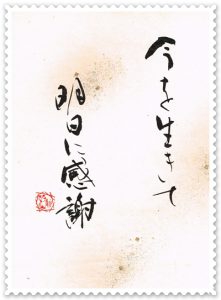 今を生きいて
明日に感謝